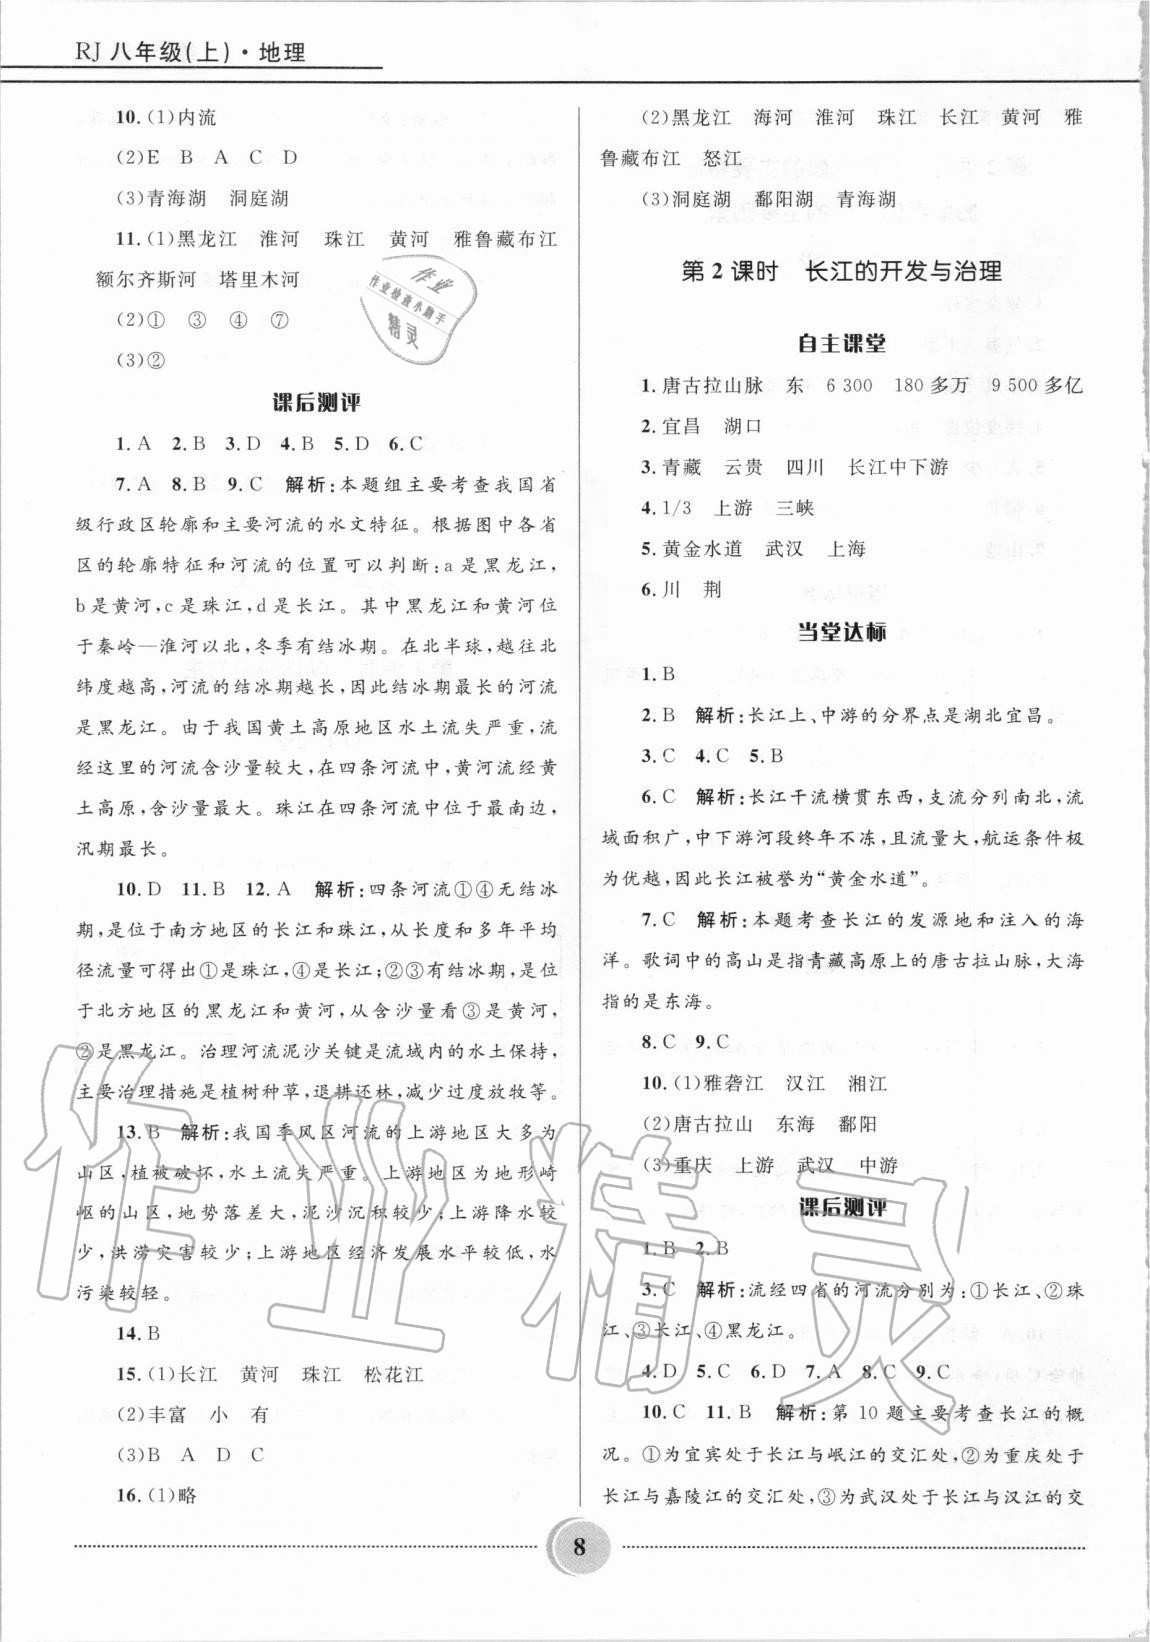 RJ 八年级(上)·地理
10. (1)内流
(2)E B A C D
(3)青海湖 洞庭湖
11. (1)黑龙江 淮河 珠江 黄河 雅鲁藏布江
额尔齐斯河 塔里木河
(2)① ③ ④ ⑦
(3)②
作业
作业检查小助手
精灵
课后测评
1. A 2. B 3. D 4. B 5. D 6. C
7. A 8. B 9. C 解析:本题组主要考查我国省
级行政区轮廓和主要河流的水文特征。根据图中各省
区的轮廓特征和河流的位置可以判断:a是黑龙江,
b是黄河,c是珠江,d是长江。其中黑龙江和黄河位
于秦岭—淮河以北,冬季有结冰期。在北半球,越往北
纬度越高,河流的结冰期越长,因此结冰期最长的河流
是黑龙江。由于我国黄土高原地区水土流失严重,流
经这里的河流含沙量较大,在四条河流中,黄河流经黄
土高原,含沙量最大。珠江在四条河流中位于最南边,
汛期最长。
10. D 11. B 12. A 解析:四条河流①④无结冰
期,是位于南方地区的长江和珠江,从长度和多年平均
径流量可得出①是珠江,④是长江;②③有结冰期,是位
于北方地区的黑龙江和黄河,从含沙量看③是黄河,
②是黑龙江。治理河流泥沙关键是流域内的水土保持,
主要治理措施是植树种草,退耕还林,减少过度放牧等。
13. B 解析:我国季风区河流的上游地区大多为
山区,植被破坏,水土流失严重。上游地区为地形崎
岖的山区,地势落差大,泥沙沉积较少;上游降水较
少,洪涝灾害较少;上游地区经济发展水平较低,水
污染较轻。
14. B
15. (1)长江 黄河 珠江 松花江
(2)丰富 小 有
(3)B A D C
16. (1)略
(2)黑龙江 海河 淮河 珠江 长江 黄河 雅
鲁藏布江 怒江
(3)洞庭湖 鄱阳湖 青海湖
第2课时 长江的开发与治理
自主课堂
1. 唐古拉山脉 东 6 300 180多万 9 500多亿
2. 宜昌 湖口
3. 青藏 云贵 四川 长江中下游
4. 1/3 上游 三峡
5. 黄金水道 武汉 上海
6. 川 荆
当堂达标
1. B
2. B 解析:长江上、中游的分界点是湖北宜昌。
3. C 4. C 5. B
6. C 解析:长江干流横贯东西,支流分列南北,流
域面积广,中下游河段终年不冻,且流量大,航运条件极
为优越,因此长江被誉为“黄金水道”。
7. C 解析:本题考查长江的发源地和注入的海
洋。歌词中的高山是指青藏高原上的唐古拉山脉,大海
指的是东海。
8. C 9. C
10. (1)雅砻江 汉江 湘江
(2)唐古拉山 东海 鄱阳
(3)重庆 上游 武汉 中游
课后测评
1. B 2. B
3. C 解析:流经四省的河流分别为:①长江、②珠
江、③长江、④黑龙江。
4. D 5. C 6. D 7. A 8. C 9. C
10. C 11. B 解析:第10题主要考查长江的概
况。①为宜宾处于长江与岷江的交汇处,②为重庆处于
长江与嘉陵江的交汇处,③为武汉处于长江与汉江的交
作业精灵
8